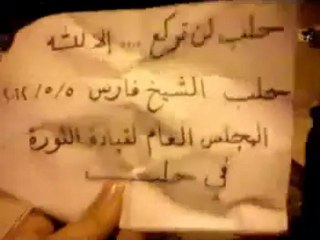 حلب لن تركع .... إلا لله
حلب الشيخ فارس ٢٠١٢/٥/٥
المجلس العام لقيادة الثورة
في حلب